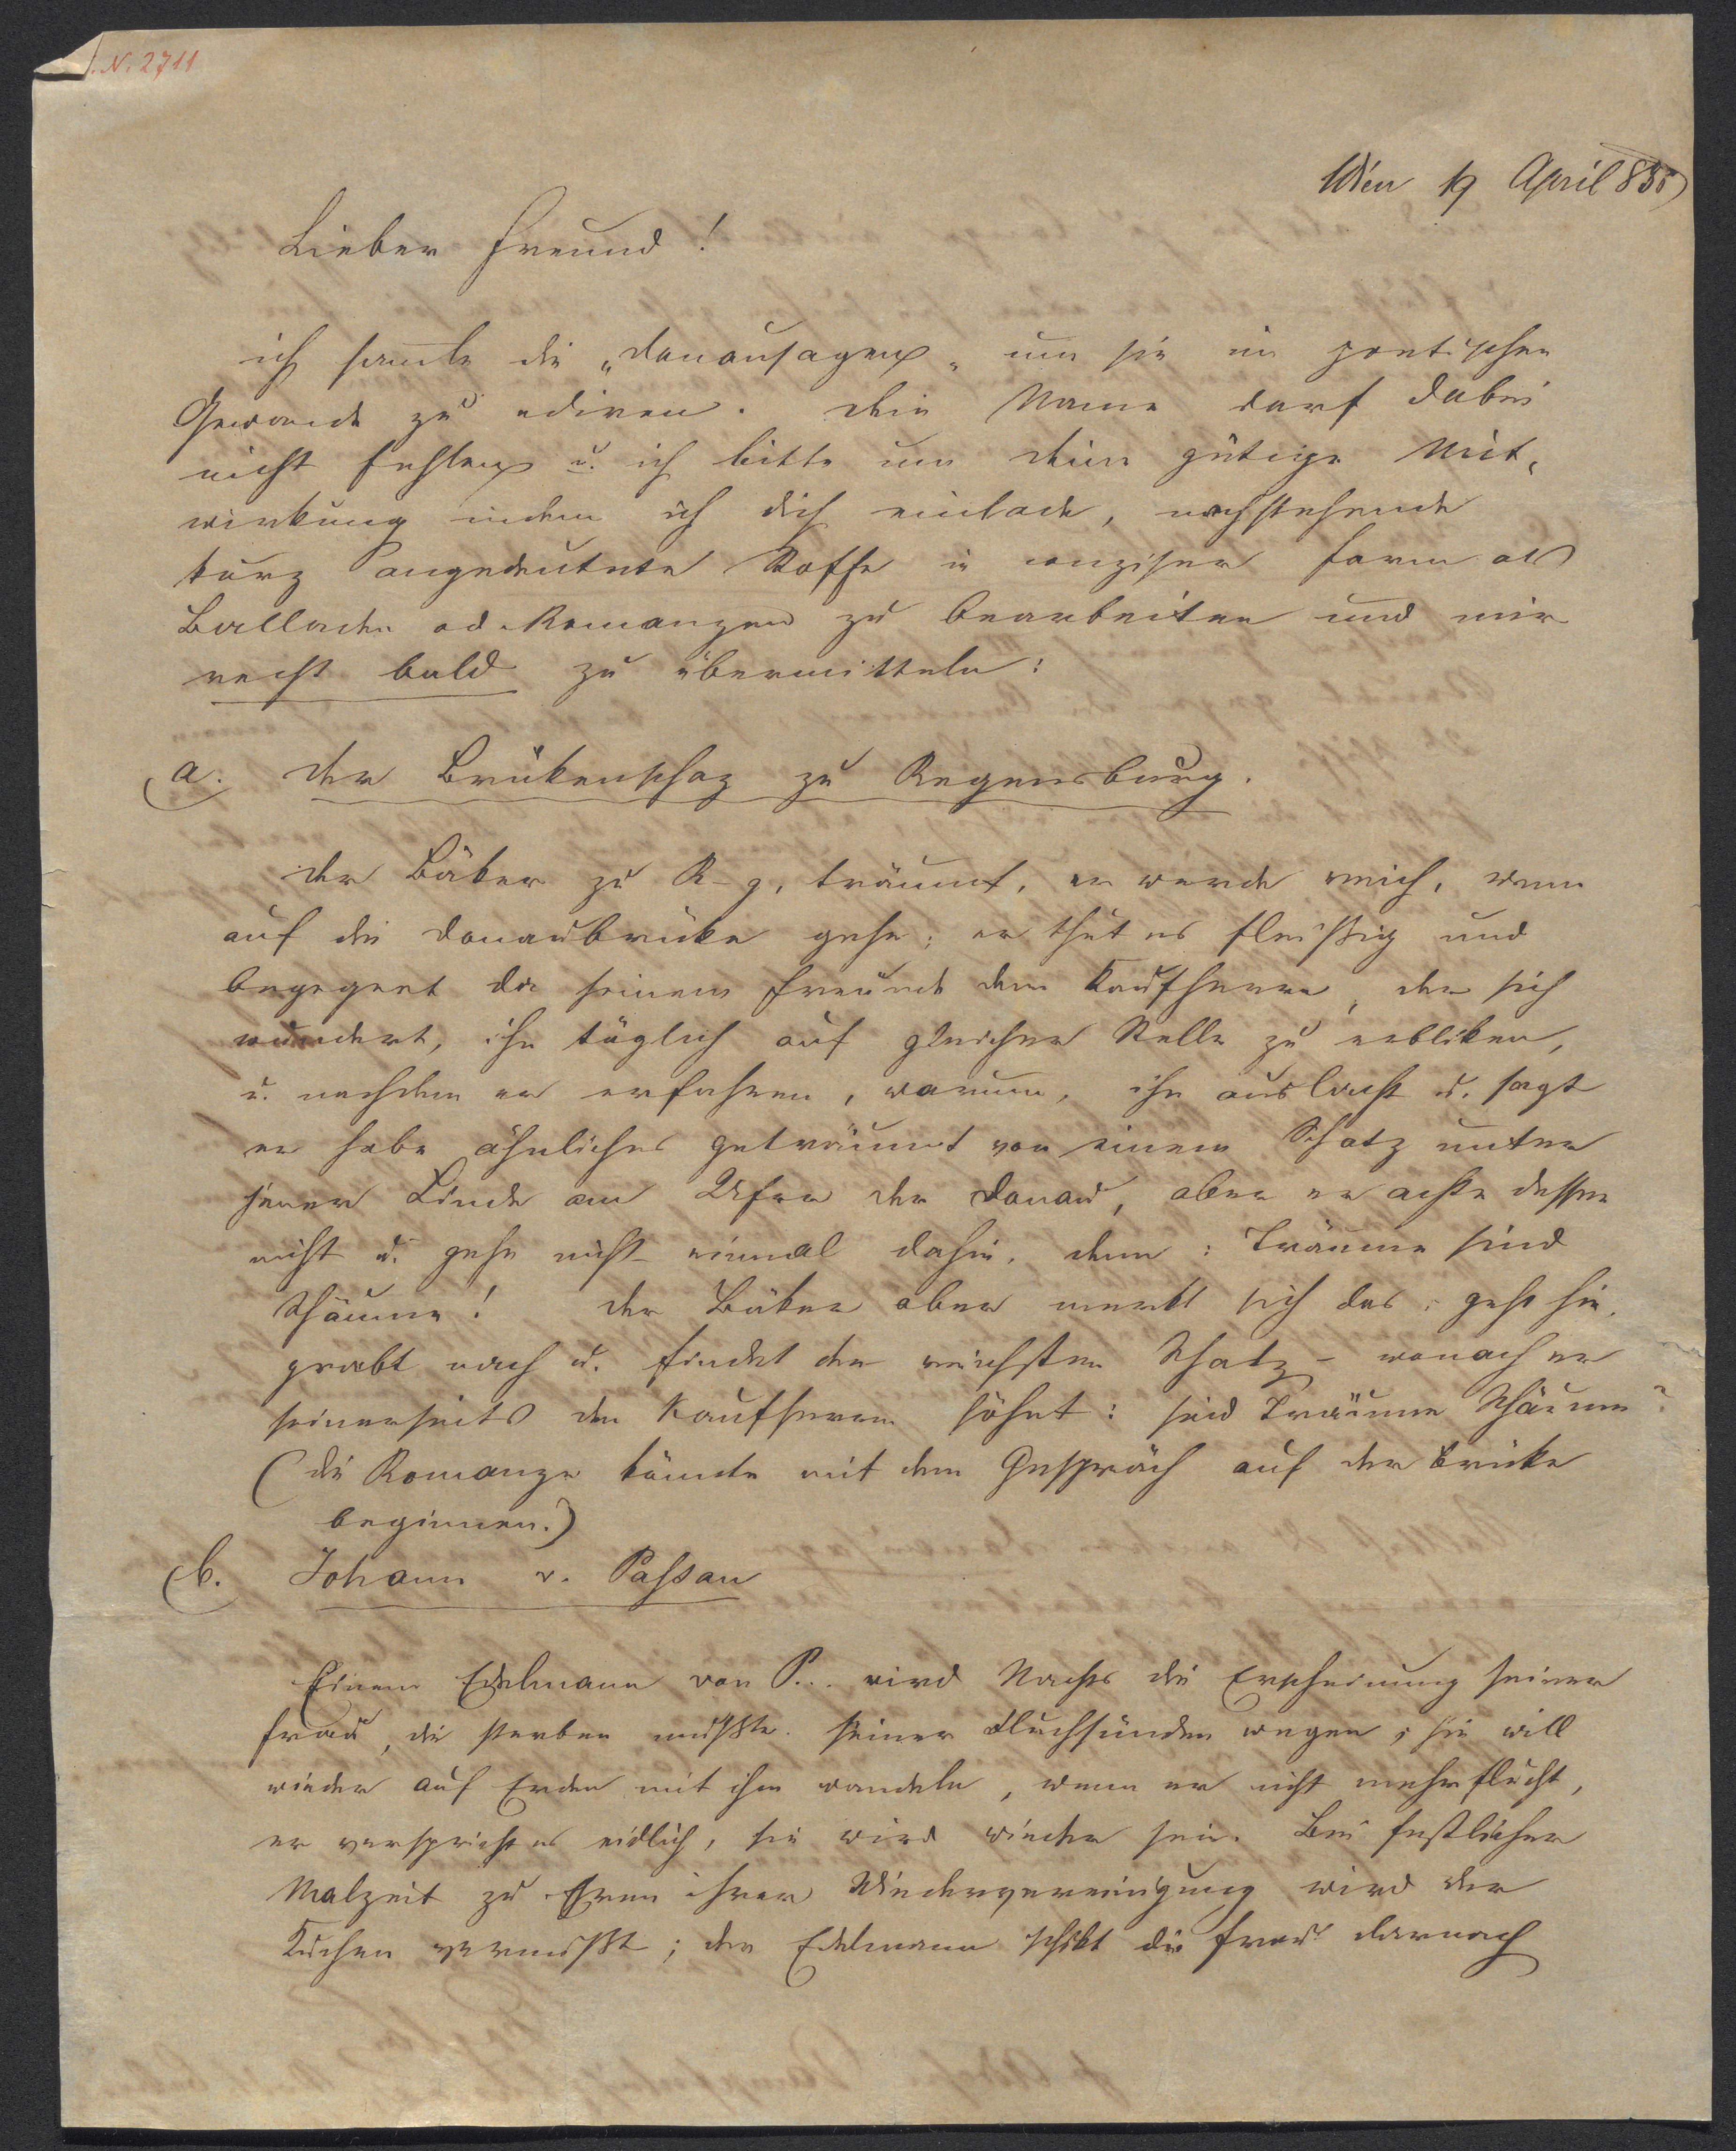 N. 2711
Wien 19 April 835
Lieber Freund!
ich samle die „Donausagen„ um sie im poetischen
Gewande zu ediren. Dein Name darf dabei
nicht fehlen u. ich bitte um deine gütige Mit,
wirkung indem ich dich einlade, nachstehende
kurz angedeutete Stoffe in conziser Form als
Ballade od. Romanzen zu bearbeiten und mir
recht bald zu übermitteln:
a. Der Brükenschaz zu Regensburg.
Der Bäker zu R–g, träumt, er werde reich, wenn
auf die Donaubrüke gehe; er thut es fleißig und
begegnet da seinem Freunde dem Kaufherrn, der sich
wundert, ihn täglich auf gleicher Stelle zu erbliken,
u. nachdem er erfahren, warum, ihn auslacht u. sagt
er habe ähnliches geträumt von einem Schatz unter
jener Linde am Ufer der Donau, aber er achte dessen
nicht u. gehe nicht einmal dahin, denn: Träume sind
Schäume! Der Bäker aber merkt sich das, geht hin,
grabt nach u. findet den reichsten Schatz – wonach er
seinerseits den Kaufherrn höhnt: sind Träume Schäume?
(die Romanze könnte mit dem Gespräch auf der Brüke
beginnen.)
b. Johann v. Passau
Einem Edelmann von P... wird Nachts die Erscheinung seiner
Frau, die sterben mußte seiner Fluchsünden wegen; sie will
wieder auf Erden mit ihm wandeln, wenn er nicht mehr flucht,
er verspricht es eidlich, sie wird wieder sein. Bei festlicher
Malzeit zu Ehren ihrer Wiedervereinigung wird der
Kuchen vermißt; der Edelmann schikt die Frau darnach